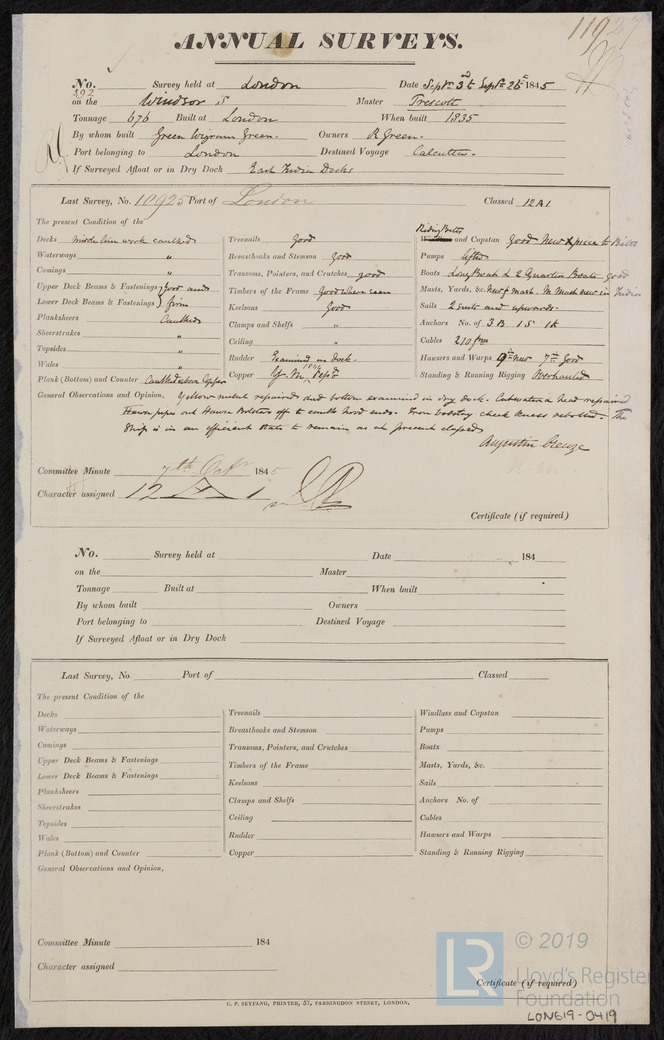 11927
ANNUAL SURVEYS.
No. 392 Survey held at London Date Septr 3d & Septr 26th 1845
on the Windsor S Master Trescott
Tonnage 676 Built at London When built 1835
By whom built Green Wigram Green. Owners R Green.
Port belonging to London Destined Voyage Calcutta.
If Surveyed Afloat or in Dry Dock East India Docks
Last Survey, No. 10925 Port of London Classed 12A1
The present Condition of the
Decks Middle line work caulked
Waterways "
Comings "
Upper Deck Beams & Fastenings } Good and
Lower Deck Beams & Fastenings } firm
Planksheers Caulked
Sheerstrakes "
Topsides "
Wales "
Plank (Bottom) and Counter Caulked above Copper
Treenails Good
Breasthooks and Stemson Good
Transoms, Pointers, and Crutches good
Timbers of the Frame Good where seen
Keelsons Good
Clamps and Shelfs "
Ceiling "
Rudder Examined in dock.
Copper Y.M. Repd
Riding Bitts
Windlass and Capstan Good New piece to Bitts
Pumps lifted
Boats Long Boat & 2 Quarter Boats good
Masts, Yards, &c. New f mast. M Mast new in India
Sails 2 suits and upwards.
Anchors No. of 3B 1S 1K
Cables 210 fms
Hawsers and Warps 9in new 7in Good
Standing & Running Rigging Overhauled
General Observations and Opinion, Yellow metal repaired and bottom examined in dry dock. Cutwater & head repaired
Hawse pipes out Hawse Bolsters off to caulk hood ends. Iron bobstay cheek knees rebolted. The
Ship is in an efficient state to remain as at present classed
Augustin Creuze
Committee Minute 7th Octr 1845
Character assigned 12 A 1
Certificate (if required)
No. Survey held at Date 184
on the Master
Tonnage Built at When built
By whom built Owners
Port belonging to Destined Voyage
If Surveyed Afloat or in Dry Dock
Last Survey, No Port of Classed
The present Condition of the
Decks
Waterways
Comings
Upper Deck Beams & Fastenings
Lower Deck Beams & Fastenings
Planksheers
Sheerstrakes
Topsides
Wales
Plank (Bottom) and Counter
Treenails
Breasthooks and Stemson
Transoms, Pointers, and Crutches
Timbers of the Frame
Keelsons
Clamps and Shelfs
Ceiling
Rudder
Copper
Windlass and Capstan
Pumps
Boats
Masts, Yards, &c.
Sails
Anchors No. of
Cables
Hawsers and Warps
Standing & Running Rigging
General Observations and Opinion,
Committee Minute 184
Character assigned
Certificate (if required)
C. P. SEYFANG, PRINTER, 57, FARRINGDON STREET, LONDON.
LR © 2019
Lloyd's Register
Foundation
LON619-0419